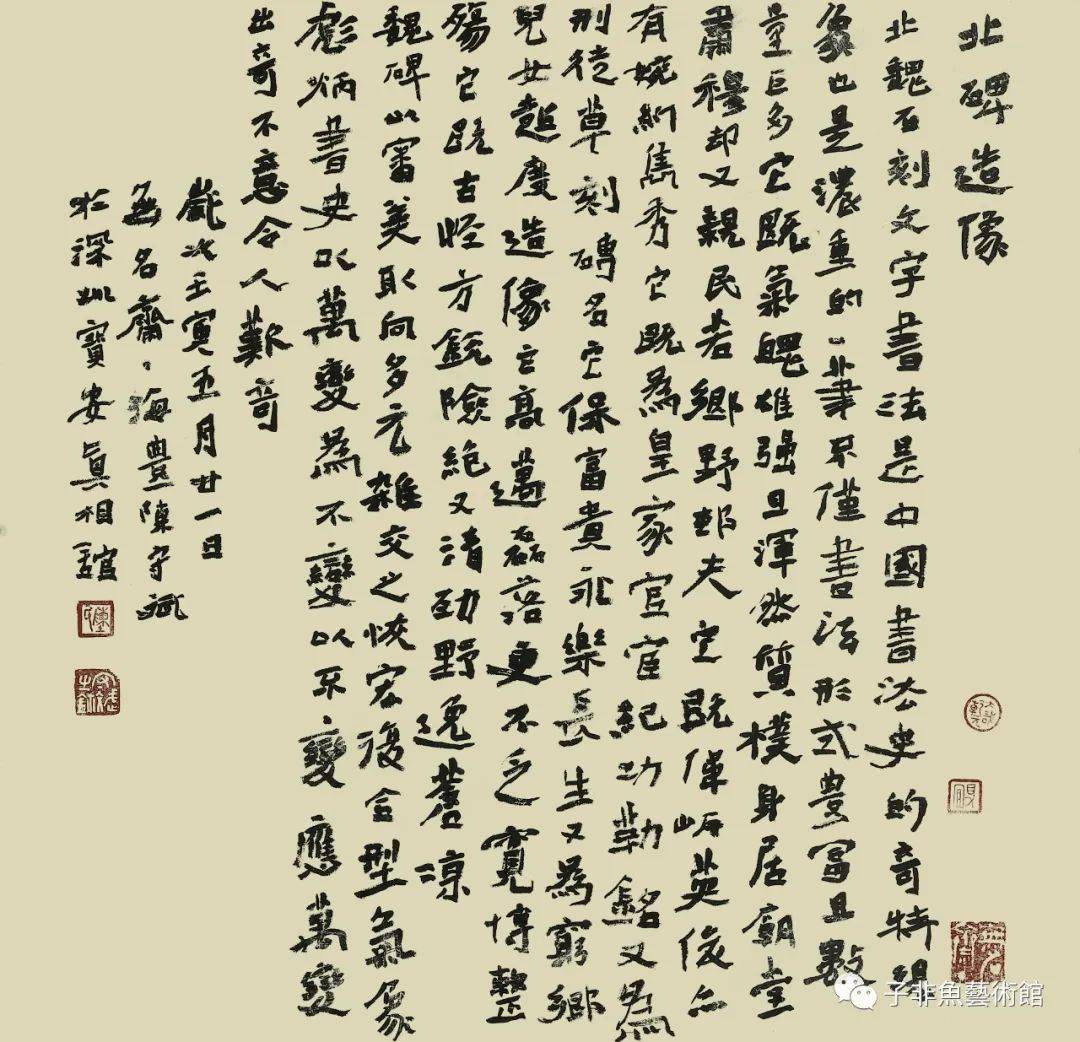 北碑造像
北魏石刻文字書法是中國書法史的奇特現
象也是濃重的一筆不僅書法形式豐富且數
量巨多它既氣魄雄强且渾然質樸身居廟堂
肅穆却又親民若鄉野邨夫它既俥岉英俊亦
有婉約雋秀它既為皇家官宦紀功勒銘又為
刑徒草刻磚名它保富貴永樂長生又為窮鄉
兒女超度造像它高邁磊落更不乏寬博整
殤它既古怪方銳險絶又清勁野逸蒼涼
魏碑以審美取向多元雜交之恢宏復合型氣象
彪炳書史以萬變為不變以不變應萬變
出奇不意令人歎奇
歲次壬寅五月廿一日
無名齋、海豊陳守斌
於深圳寶安真相舘
子非魚藝術館